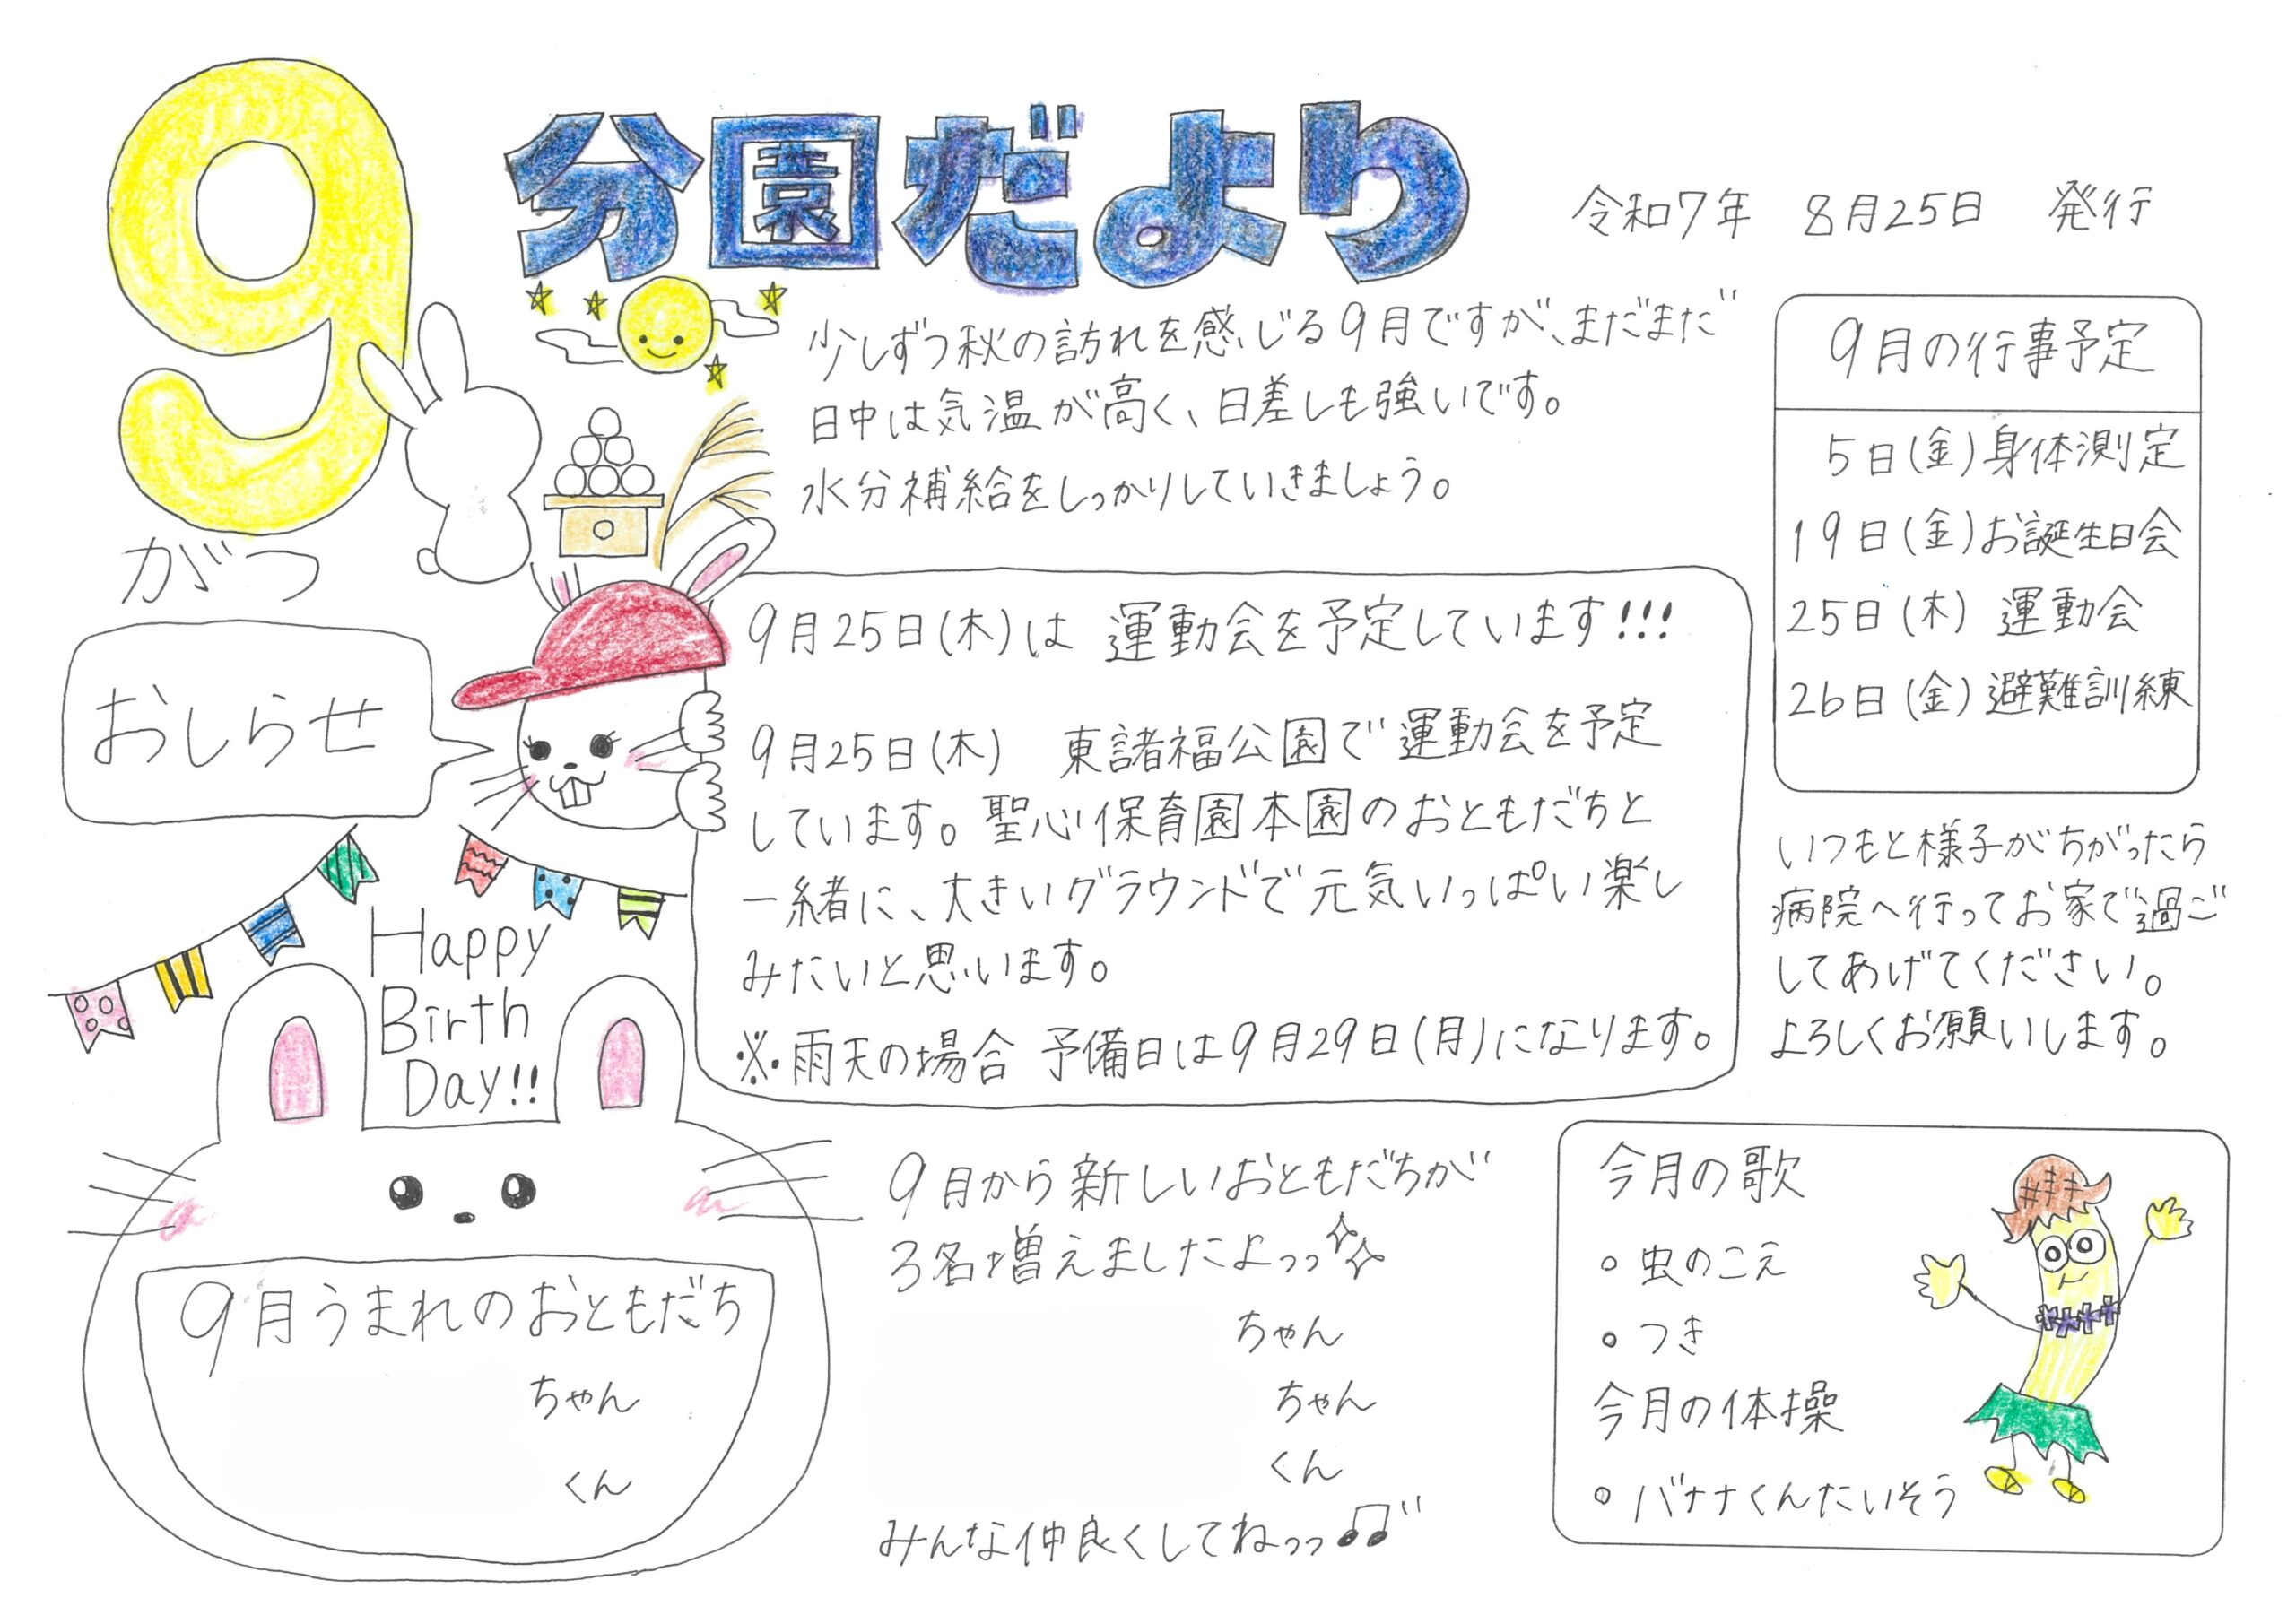 9
がつ
分園だより
令和7年 8月25日 発行
少しずつ秋の訪れを感じる9月ですが、まだまだ
日中は気温が高く、日差しも強いです。
水分補給をしっかりしていきましょう。
9月の行事予定
5日(金)身体測定
19日(金)お誕生日会
25日(木) 運動会
26日(金)避難訓練
おしらせ
9月25日(木)は 運動会を予定しています!!!
9月25日(木) 東諸福公園で運動会を予定
しています。聖心保育園本園のおともだちと
一緒に、大きいグラウンドで元気いっぱい楽し
みたいと思います。
※雨天の場合 予備日は9月29日(月)になります。
いつもと様子がちがったら
病院へ行ってお家で過ご
してあげてください。
よろしくお願いします。
Happy
Birth
Day!!
9月うまれのおともだち
ちゃん
くん
9月から新しいおともだちが
3名増えましたよっっ
ちゃん
ちゃん
くん
みんな仲良くしてねっっ♫
今月の歌
○ 虫のこえ
○ つき
今月の体操
○ バナナくんたいそう